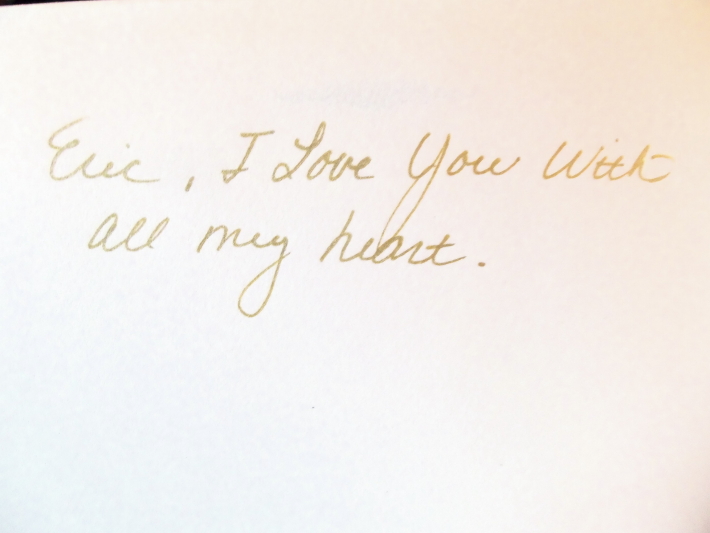 Eric, I Love You With
all my heart.